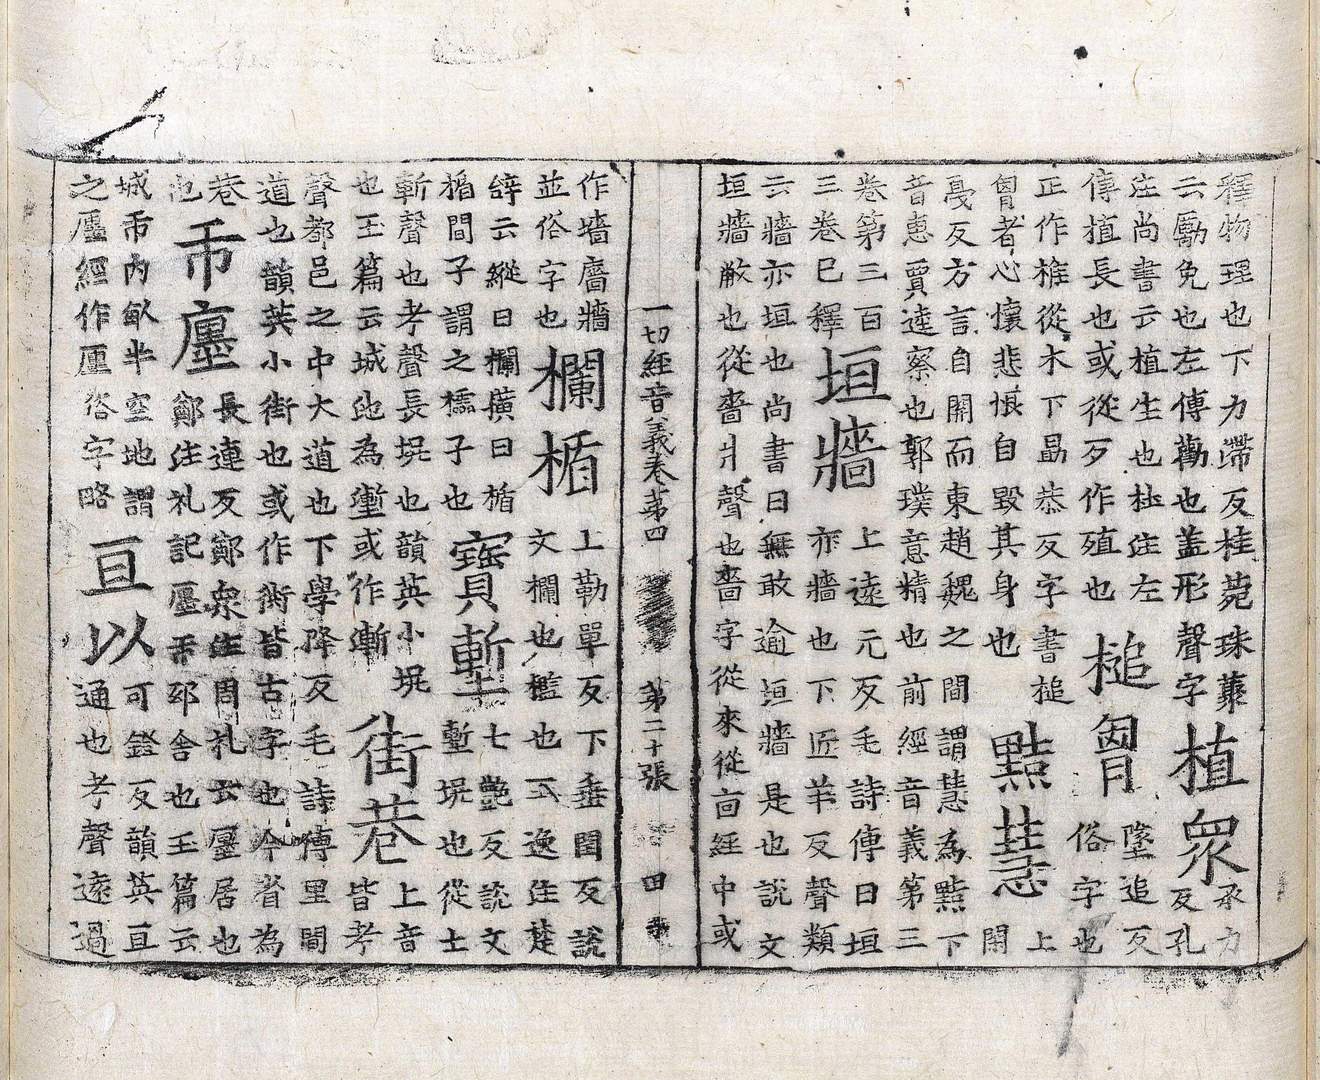 釋物理也下力滯反桂菀珠藂
云勵免也左傳勸也蓋形聲字
植眾
承力
反孔
注尚書云植生也杜注左
傳植長也或從歹作殖也
槌𦙄
墜追反
俗字也
正作椎從木下勗恭反字書槌
𦙄者心懷悲恨自毀其身也
黠慧
上
閑
戞反方言自關而東趙魏之間謂慧為黠下
音惠賈逵察也郭璞意精也前經音義第三
卷第三百
三卷巳釋
垣牆
上遠元反毛詩傳曰垣
亦牆也下匠羊反聲類
云牆亦垣也尚書曰無敢逾垣牆是也說文
垣牆蔽也從嗇爿聲也嗇字從來從㐭經中或
一切經音義卷第四 第二十張 田
作墻廧牆
並俗字也
欄楯
上勒單反下垂閏反說
文欄也檻也王逸注楚
辝云縱曰欄撗曰楯
楯間子謂之櫺子也
寶塹
七艷反說文
塹坑也從土
斬聲也考聲長坑也韻英小坑
也玉篇云城池為壍或作漸
街巷
上音
皆考
聲都邑之中大道也下學降反毛詩傳里間
道也韻英小街也或作衖皆古字也今省為
巷
也
市𢌅
長連反鄭眾注周礼云𢌅居也
鄭注礼記𢌅市邸舍也玉篇云
城市內畝半空地謂
之𢌅經作厘俗字略
亘以
可鐙反韻英亘
通也考聲遠過